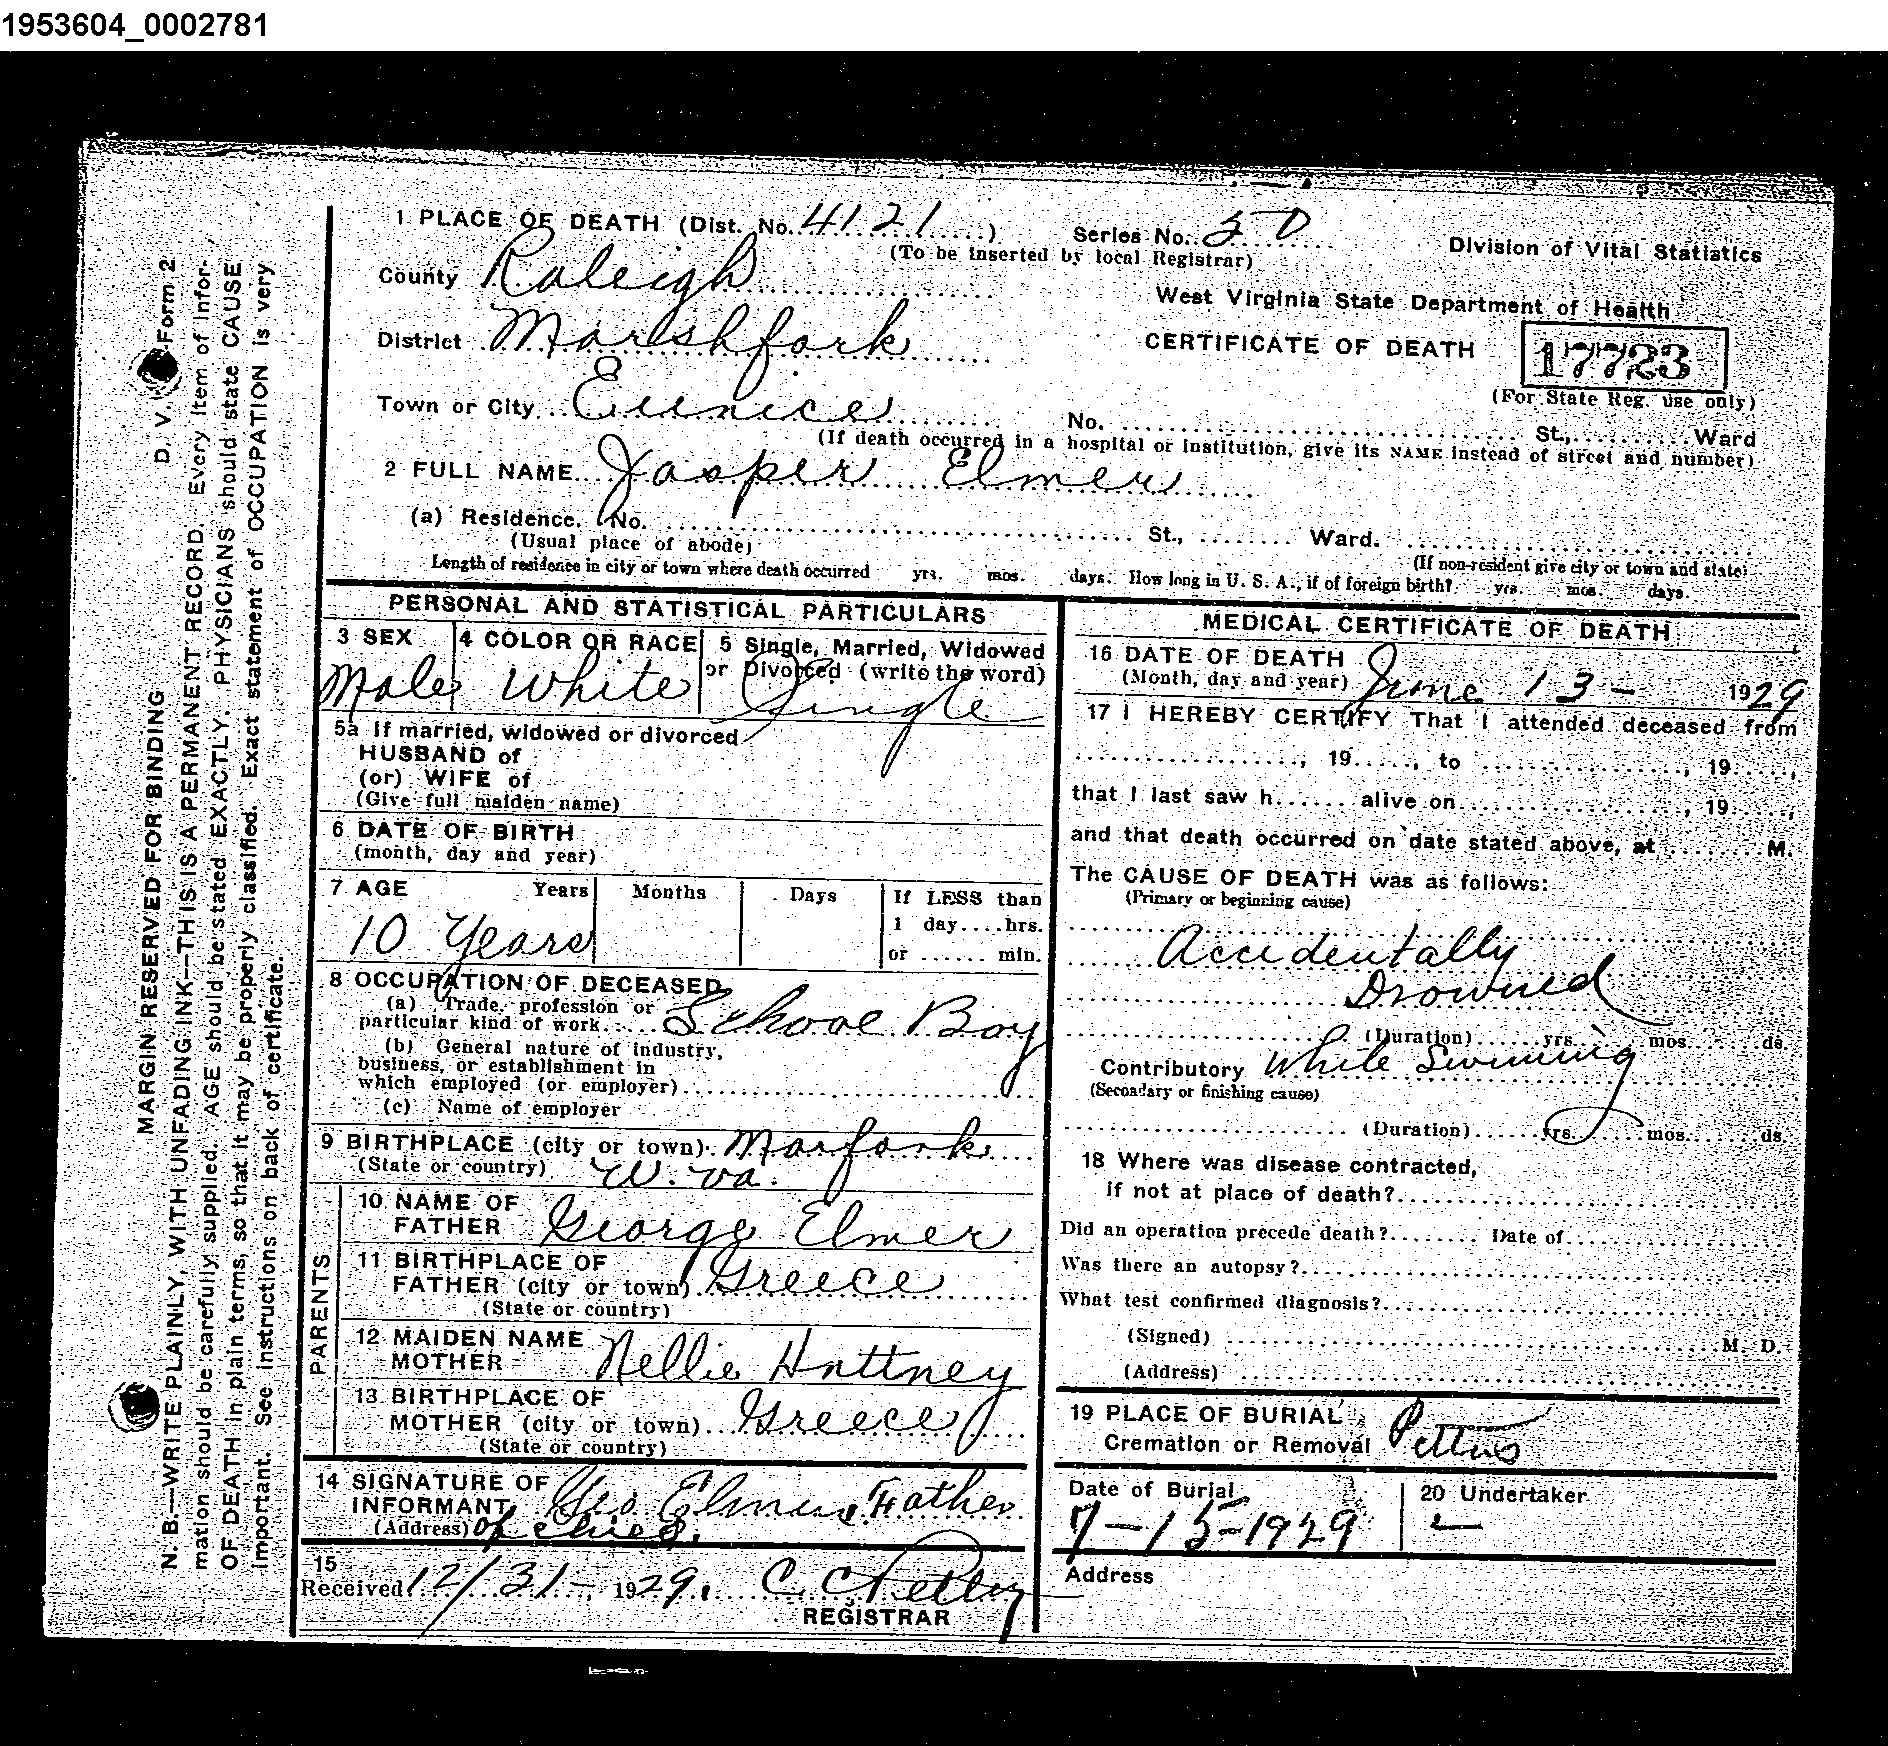 1953604_0002781
1 PLACE OF DEATH (Dist. No. 4121 ) Series No. 50
(To be inserted by local Registrar)
Division of Vital Statistics
County Raleigh
West Virginia State Department of Health
District Marshfork
CERTIFICATE OF DEATH 17723
(For State Reg. use only)
Town or City Eunice No. St., Ward
(If death occurred in a hospital or institution, give its NAME instead of street and number)
2 FULL NAME Jasper Elmer
(a) Residence. No. St., Ward.
(Usual place of abode) (If non-resident give city or town and state)
Length of residence in city or town where death occurred yrs. mos. days. How long in U. S. A., if of foreign birth? yrs. mos. days.
PERSONAL AND STATISTICAL PARTICULARS
3 SEX 4 COLOR OR RACE 5 Single, Married, Widowed
or Divorced (write the word)
Male White Single
5a If married, widowed or divorced
HUSBAND of
(or) WIFE of
(Give full maiden name)
6 DATE OF BIRTH
(month, day and year)
7 AGE Years Months Days If LESS than
1 day....hrs.
or ...... min.
10 Years
8 OCCUPATION OF DECEASED
(a) Trade, profession or
particular kind of work School Boy
(b) General nature of industry,
business, or establishment in
which employed (or employer)
(c) Name of employer
9 BIRTHPLACE (city or town) Marfork
(State or country) W. Va.
PARENTS
10 NAME OF
FATHER George Elmer
11 BIRTHPLACE OF
FATHER (city or town) Greece
(State or country)
12 MAIDEN NAME
MOTHER Nellie Huttney
13 BIRTHPLACE OF
MOTHER (city or town) Greece
(State or country)
14 SIGNATURE OF
INFORMANT Geo Elmer Father
(Address) of
15
Received 12/31-, 1929. C. C. Petty
REGISTRAR
MEDICAL CERTIFICATE OF DEATH
16 DATE OF DEATH
(Month, day and year) June 13 - 1929
17 I HEREBY CERTIFY That I attended deceased from
, 19....., to , 19.....,
that I last saw h....... alive on , 19.....,
and that death occurred on date stated above, at M.
The CAUSE OF DEATH was as follows:
(Primary or beginning cause)
Accidentally
Drowned
(Duration) yrs. mos. ds.
Contributory While Swimming
(Secondary or finishing cause)
(Duration) yrs. mos. ds.
18 Where was disease contracted,
if not at place of death?
Did an operation precede death? Date of
Was there an autopsy?
What test confirmed diagnosis?
(Signed) M. D.
(Address)
19 PLACE OF BURIAL
Cremation or Removal Pettus
Date of Burial 20 Undertaker
7-15-1929 —
Address
MARGIN RESERVED FOR BINDING D. V. Form 2
N. B.—WRITE PLAINLY, WITH UNFADING INK—THIS IS A PERMANENT RECORD. Every item of infor-
mation should be carefully supplied. AGE should be stated EXACTLY. PHYSICIANS should state CAUSE
OF DEATH in plain terms, so that it may be properly classified. Exact statement of OCCUPATION is very
important. See instructions on back of certificate.